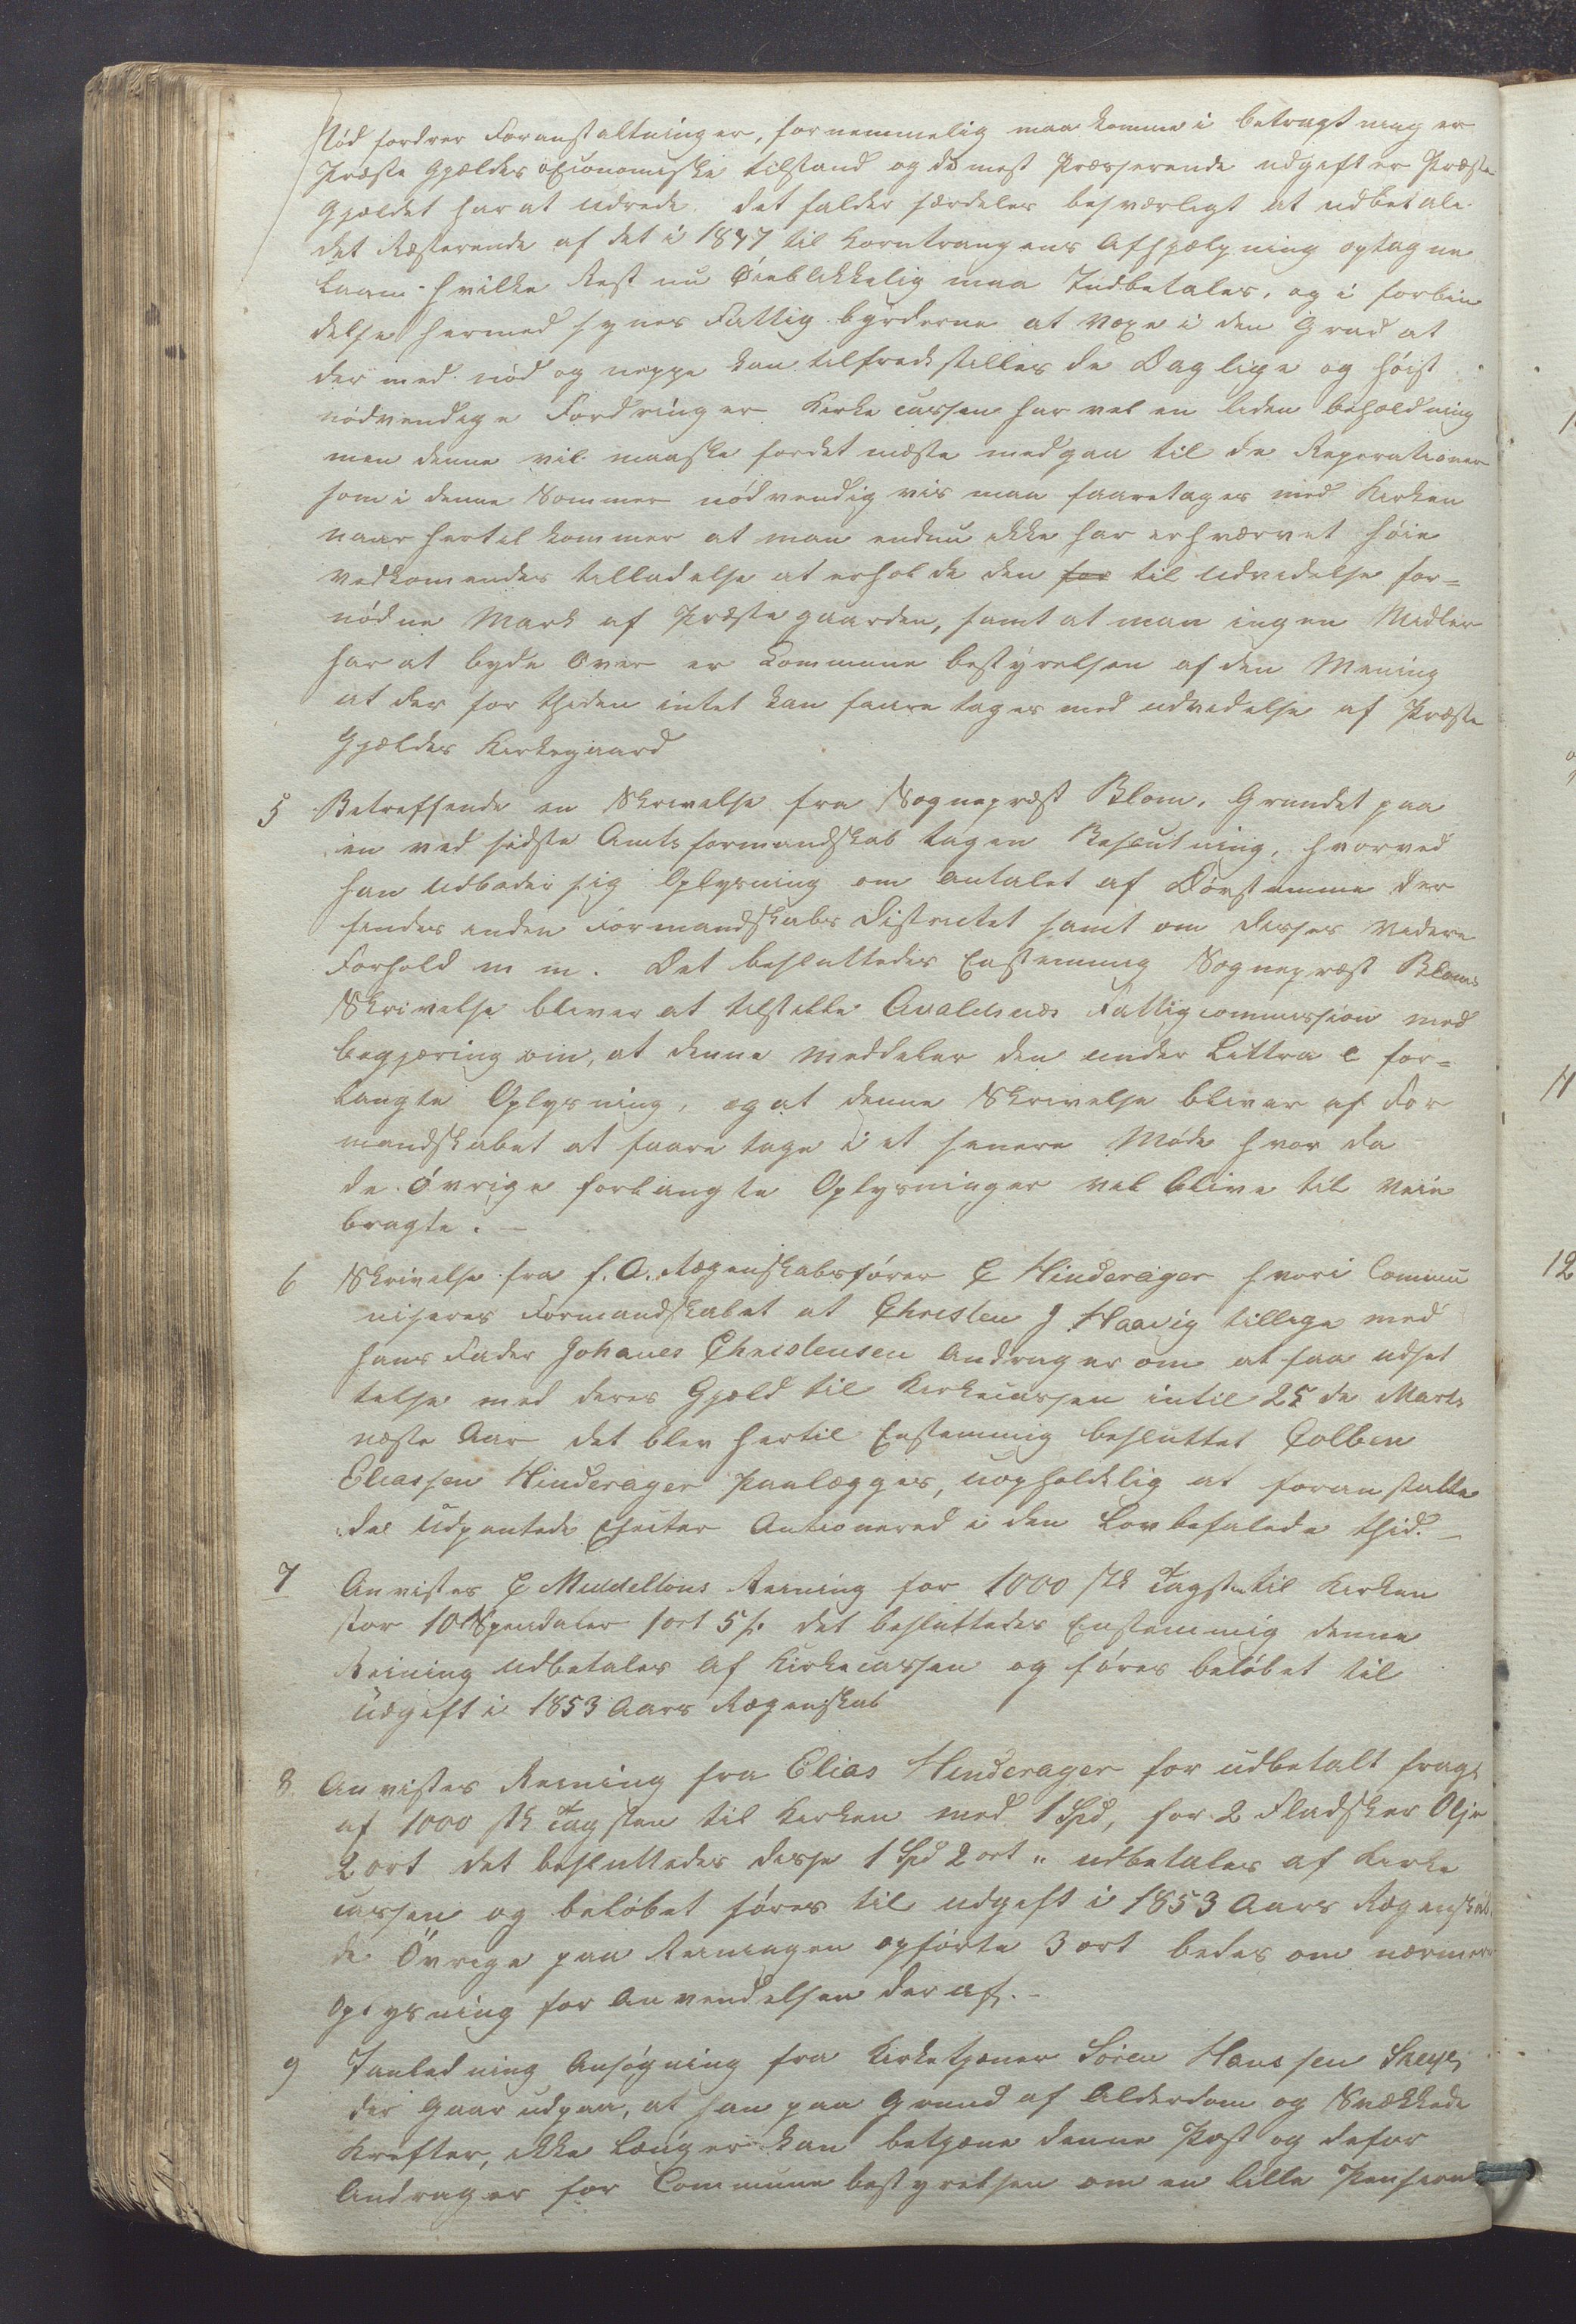 Nød fordrer Foranstaltninger, fornemmelig maa komme i betragtning er
Præste Gjældes oeconomiske tilstand og de mest Præsserende udgifter Præste
Gjældet har at Udrede. det falder særdeles besværligt at udbetale
det Resterende af det i 1847 til Korntrangens Afhjælpning optagne
Laan hvilke Rest nu Øieblikkelig maa Indbetales, og i forbin
delse hermed synes Fattig byrderne at voxe i den Grad at
der med nød og neppe kan tilfredsstilles de Daglige og høist
nødvendige Fordringer Kirke cassen har vel en liden beholdning
men denne vil maaske fordet meste medgaa til de Reperationer
som i denne Sommer nødvendig vis maa faaretages med Kirken
naar hertil kommer at man endnu ikke har erhværvet høie
vedkomendes tilladelse at erholde den for til Udvidelse for=
nødne Mark af Præste gaarden, samt at man ingen Midler
har at byde over er Commune bestyrelsen af den Mening
at der for thiden intet kan faare tages med udvidelse af Præste
Gjældes Kirkegaard
5 Betreffende en Skrivelse fra Sognepræst Blom, Grundet paa
en ved sidste Amtsformandskab tagen Beslutning, hvorved
han Udbeder sig Oplysning om Antalet af Døvstumme der
findes inden Formandskabs Districtet samt om disses videre
Forhold m m. Det besluttedes Enstemmig Sognepræst Bloms
Skrivelse bliver at tilstille Avaldsnæs Fattigcommission med
begjæring om, at denne meddeler den under Littra c for=
langte Oplysning, og at denne Skrivelse bliver af For
mandskabet at faare tage i et senere Møde hvor da
de øvrige forlangte Oplysninger vil blive til veie
bragte. —
6 Skrivelse fra f. O. Rægenskabsfører C Hinderager hvori Commu
niseres Formandskabet at Christen J Haavig tillige med
hans Fader Johanes Christensen Andrager om at faa udset
telse med deres Gjæld til Kirkecassen intil 25de Marts
næste Aar det blev hertil Enstemmig besluttet Colben
Eliassen Hinderager Paalægges, uopholdelig at foranstalte
de Udpantede Efecter Auctionered i den Lovbefalede thid. —
7 Anvistes C Middeltons Reining for 1000 stk Tagsten til Kirken
stor 10 Speciedaler 1 ort 5 s. det besluttedes Enstemmig denne
Reining Udbetales af Kirkecassen og føres beløbet til
Udgift i 1853 Aars Rægenskab
8 Anvistes Reining fra Elias Hinderager for udbetalt fragt
af 1000 stk Tagsten til Kirken med 1 Spd, for 2 Fladsker Olje
2 ort det besluttedes disse 1 Spd 2 ort " udbetales af Kirke
cassen og beløbet føres til udgift i 1853 Aars Rægenskab
de Øvrige paa Reiningen opførte 3 ort bedes om nærmere
Oplysning for Anvendelsen deraf. —
9 I anledning Ansøgning fra Kirketjener Sören Hanssen
der Gaar udpaa, at han paa Grund af Alderdom og Svækkede
Krefter, ikke Længer kan betjene denne Post og defor
Andrager for Commune bestyrelsen om en lille Pension
12